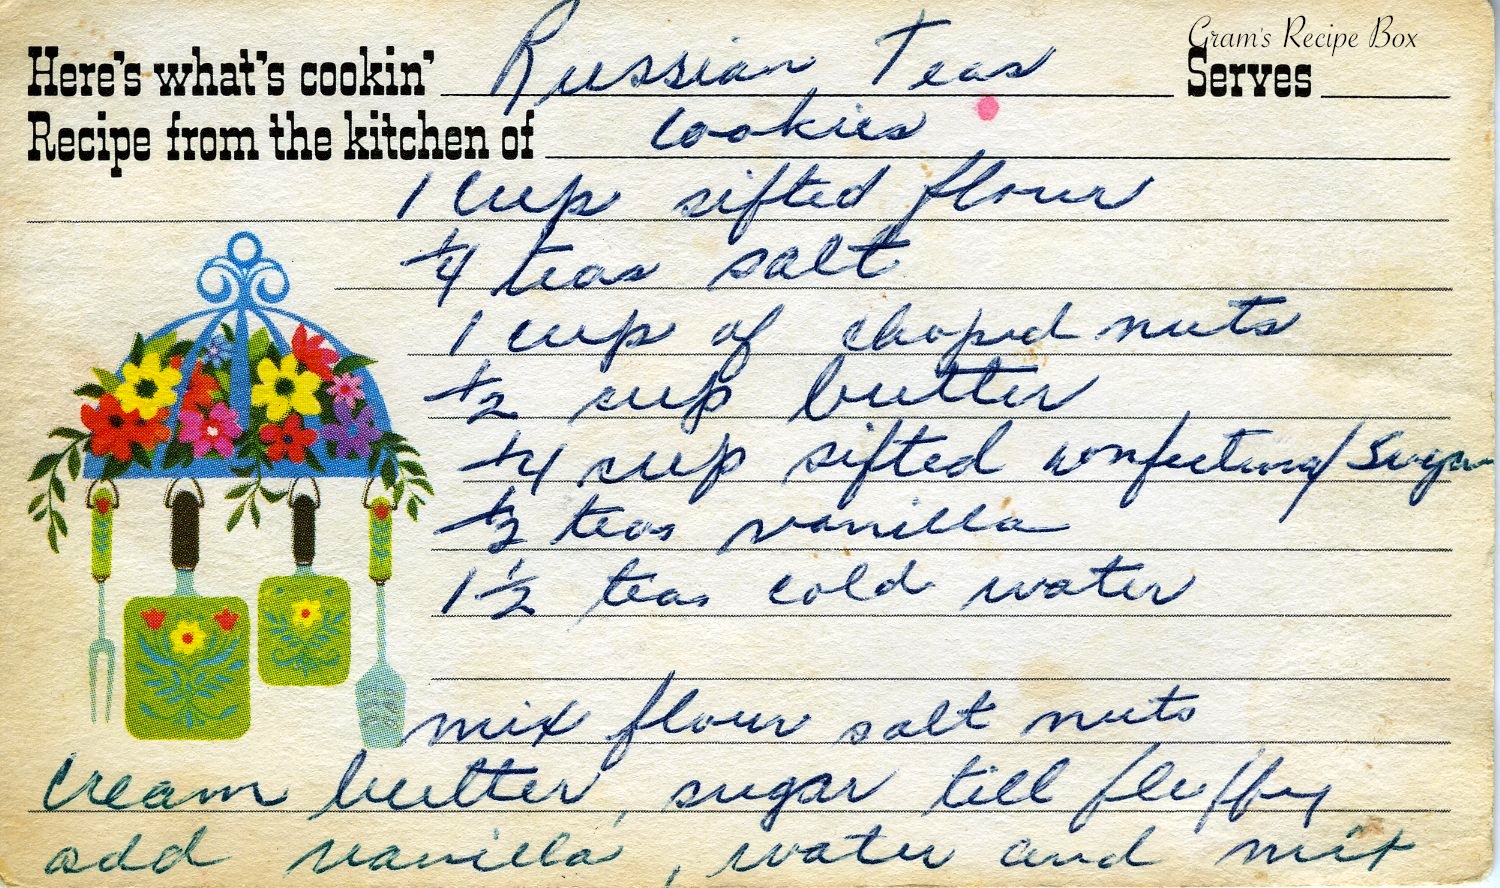 Gram's Recipe Box
Here's what's cookin' Russian Teas Serves
Recipe from the kitchen of Cookies
1 cup sifted flour
1/4 teas salt
1 cup of choped nuts
1/2 cup butter
1/4 cup sifted confectionary Sugar
1/2 teas vanilla
1 1/2 teas cold water
mix flour salt nuts
Cream butter, sugar till fluffy
add vanilla, water and mix